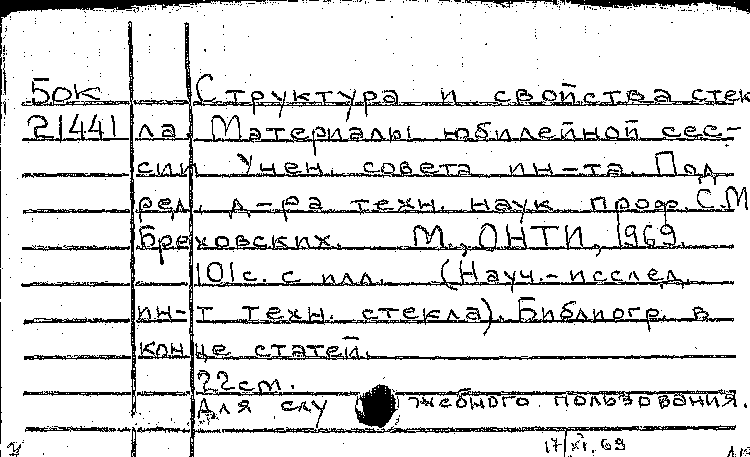 БОК Структура и свойства стек
21441 ла. Материалы юбилейной сес-
сии Учен. совета ин-та. Под
ред. д-ра техн. наук проф. С.М
Бреховских. М., ОНТИ, 1969.
101с. с илл. (Науч.-исслед.
ин-т техн. стекла). Библиогр. в
конце статей.
22см.
Для служебного пользования.
17/XI.69